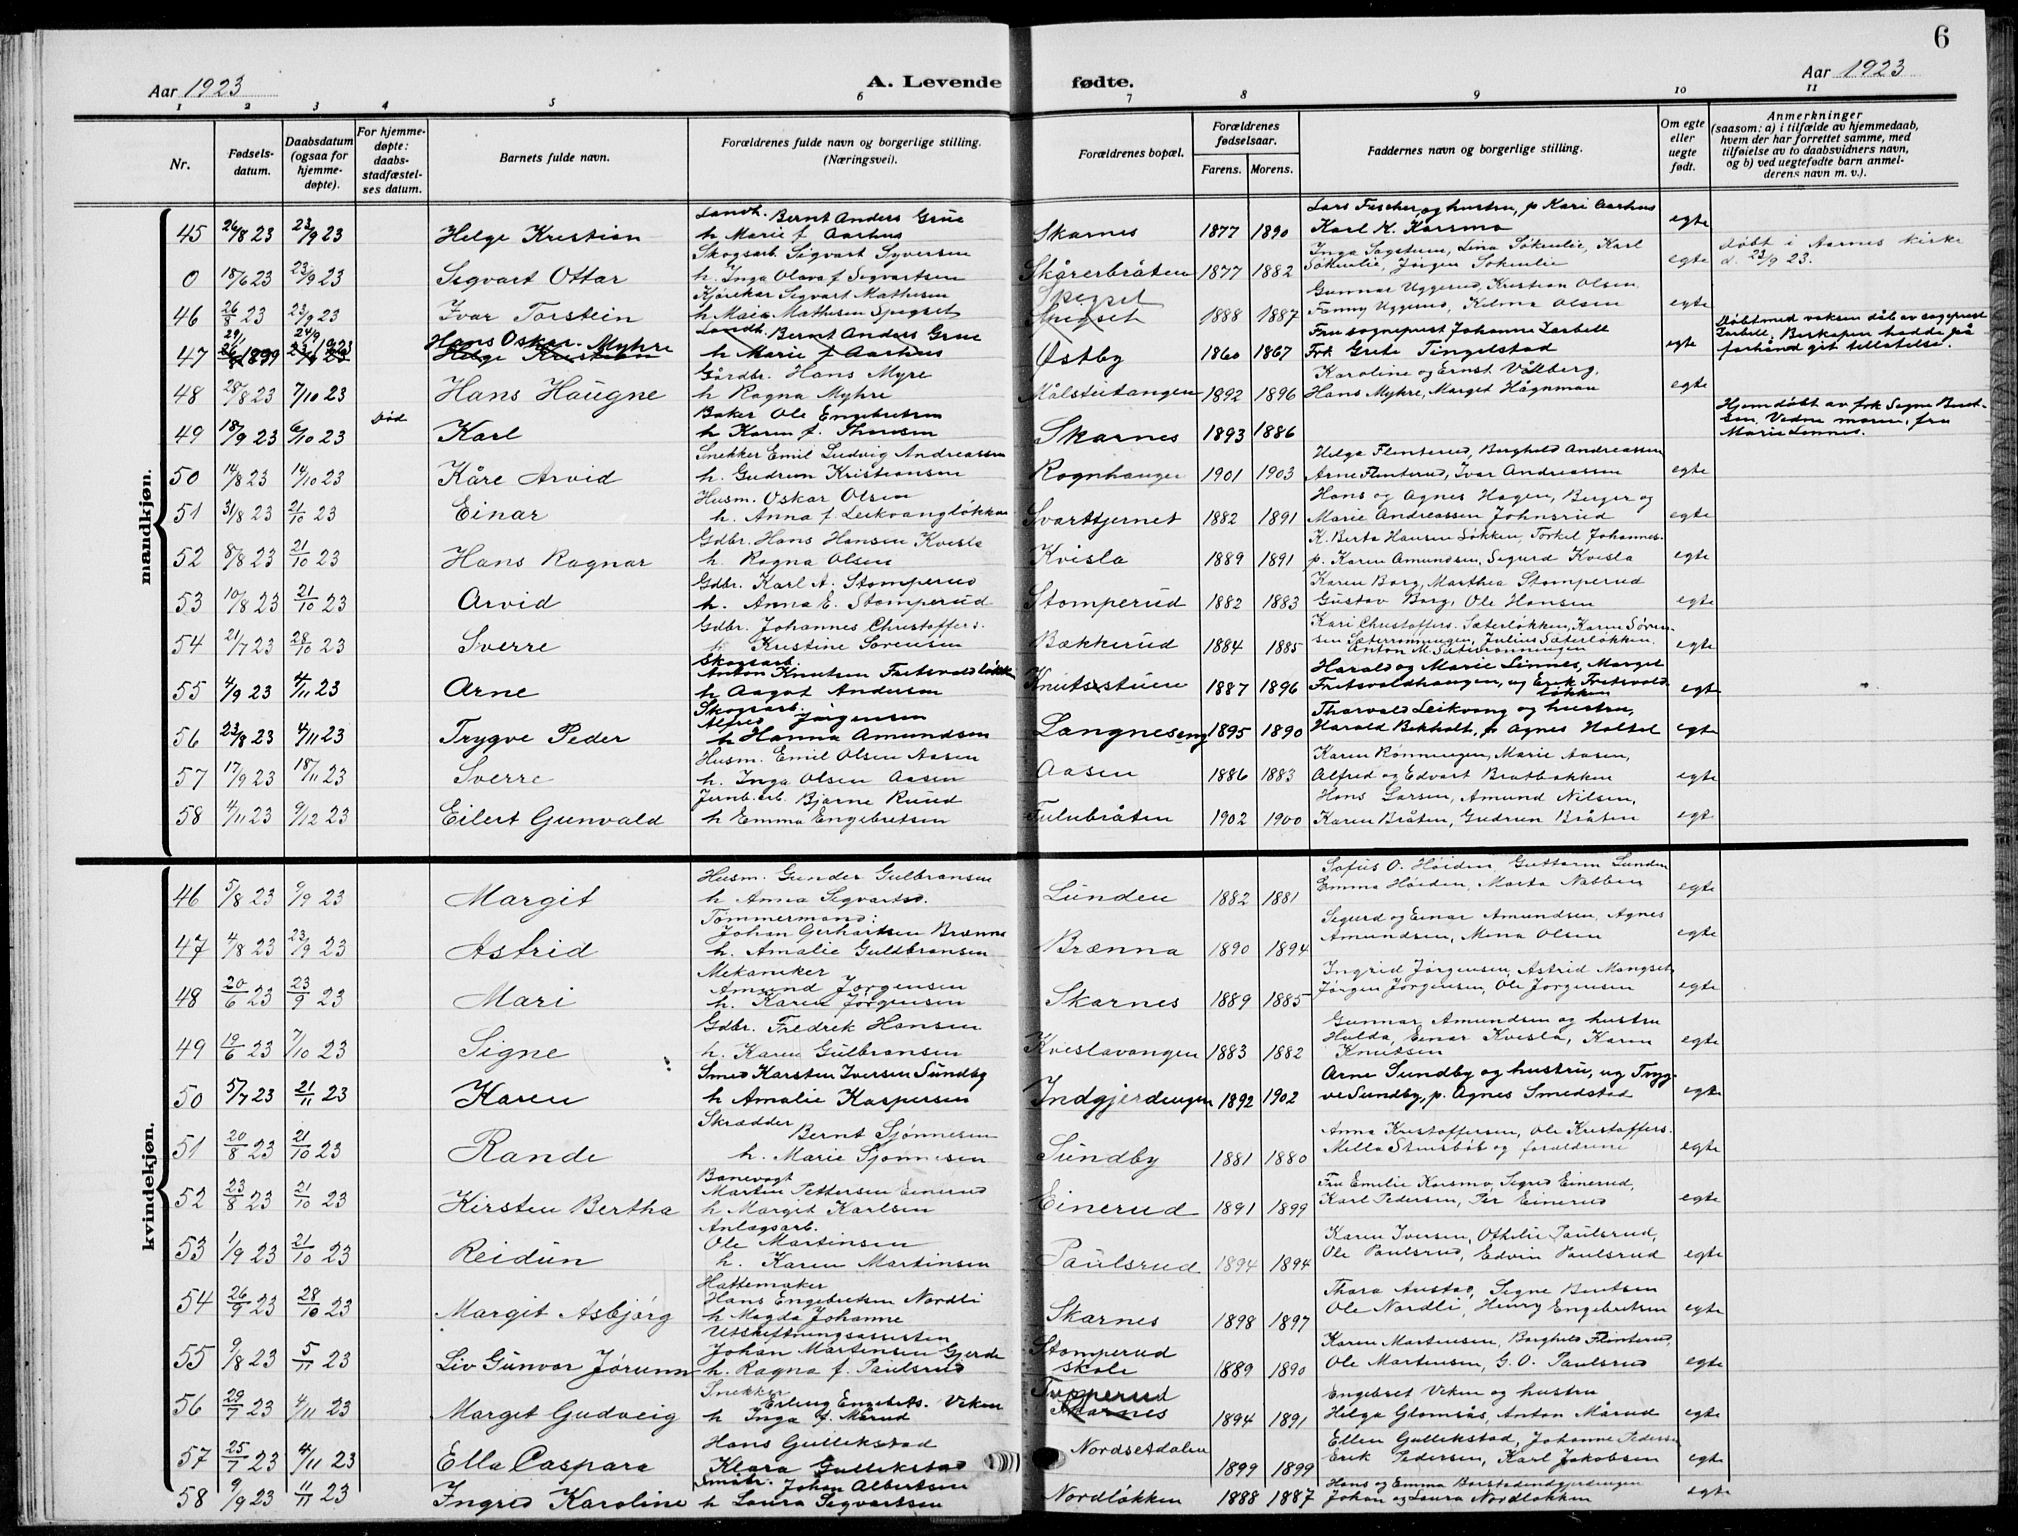 6
Aar 1923
A. Levende fødte.
Aar 1923
1 2 3 4 5 6 7 8 9 10 11
Nr.
Fødsels-
datum.
Daabsdatum
(ogsaa for
hjemme-
døpte).
For hjemme-
døpte:
daabs-
stadfæstel-
ses datum.
Barnets fulde navn.
Forældrenes fulde navn og borgerlige stilling.
(Næringsvei).
Forældrenes bopæl.
Forældrenes
fødselsaar.
Farens. Morens.
Faddernes navn og borgerlige stilling.
Om egte
eller
uegte
født.
Anmerkninger
(saasom: a) i tilfælde av hjemmedaab,
hvem der har forrettet samme, med
tilføielse av to daabsvidners navn,
og b) ved uegtefødte barn anmel-
derens navn m. v.).
mandkjøn.
Landh. Bernt Anders Grue Lars Fischer og hustru, p Kari Aarhus
45 26/8 23 23/9 23 Helge Kristian h Marie f Aarhus Skarnes 1877 1890 Karl K. Korsmo egte
Skogsarb. Sigvart Syversen Inga Sagstuen, Lina Søkenlie, Karl døbt i Aarnes kirke
0 18/6 23 23/9 23 Sigvart Ottar h. Inga Olava f Sigvartsen Skårerbråten 1877 1882 Søkenlie, Jørgen Søkenlie egte d. 23/9 23.
Kjørekar Sigvart Mathisen Spigset Gunnar Uggerud, Kristian Olsen,
46 26/8 23 23/9 23 Ivar Torstein h Maie Mathisen Spigset Spigset 1888 1887 Fanny Uggerud, Hilma Olsen egte
29/1 24/9 1923 Hans Oskar Myhre Landh. Bernt Anders Grue Fru sogneprest Johanne Zarbell
47 1899 Helge Kristian h Marie f Aarhus Østby 1860 1867 Frk Grete Tingelstad egte forhånd git tillatelse.
Gårdbr. Hans Myre Karoline og Ernst Vålberg,
48 28/8 23 7/10 23 Hans Haugne h Ragna Myhre Målstutangen 1892 1896 Hans Myhre, Margit Hågnmon egte
død Baker Ole Engebretsen Hjemdøbt av frk Signe Berdt-
49 18/9 23 6/10 23 Karl h Karen f. Thoresen Skarnes 1893 1886 sen. Vidne moren, fru
Marie Linnes.
Snekker Emil Ludvig Andreassen Helga Flenterud, Borghild Andreassen
50 14/8 23 14/10 23 Kåre Arvid h. Gudrun Kristiansen Rognhaugen 1901 1903 Arne Flenterud, Ivar Andreassen egte
Husm. Oskar Olsen Hans og Agnes Hagen, Berger og
51 31/8 23 21/10 23 Einar h. Anna f. Leikvangløkken Svarttjernet 1882 1891 Marie Andreassen Johnsrud egte
Gdbr. Hans Hansen Kvisla K. Berta Hansen Løkken, Torkil Johannes.
52 8/8 23 21/10 23 Hans Ragnar h. Ragna Olsen Kvisla 1889 1891 p. Karen Amundsen, Sigurd Kvisla egte
Gdbr. Karl A. Stomperud Karen Borg, Marthea Stomperud
53 10/8 23 21/10 23 Arvid h. Anna E. Stomperud Stomperud 1882 1883 Gustav Borg, Ole Hansen egte
Gdbr. Johannes Christoffers. Kari Christoffers. Sæterløkken, Karen Søren-
54 21/7 23 28/10 23 Sverre h Kristine Sørensen Bækkerud 1884 1885 sen Sæterrønningen, Julius Sæterløkken. egte
Anton M. Sæterrønningen
Skogsarb.
Anton Knutsen Fritsvoldløkk. Harald og Marie Linnes, Margit
55 4/9 23 4/11 23 Arne h Aagot Andersen Knutsstuen 1887 1896 Fritsvoldhaugen, og Erik Fritsvold- egte
løkken
Skogsarb.
Alfred Jørgensen Thorvald Leikvang og hustru,
56 23/8 23 4/11 23 Trygve Peder h Hanna Amundsen Langneseng 1895 1890 Harald Bekholt, p Agnes Holtet egte
Husm. Emil Olsen Aasen Karen Rønningen, Marie Aasen,
57 17/9 23 18/11 23 Sverre h. Inga Olsen Aasen Aasen 1886 1883 Alfred og Edvart Bratbakken egte
Jernb.arb. Bjarne Ruud Hans Larsen, Amund Nilsen,
58 4/11 23 9/12 23 Eilert Gunvald h Emma Engebretsen Fulubråten 1902 1900 Karen Bråten, Gudrun Bråten egt
kvindekjøn.
Husm. Gunder Gulbransen Sofus O. Høiden, Guttorm Lunden
46 5/8 23 9/9 23 Margit h Anna Sigvartsd. Lunden 1882 1881 Emma Høiden, Marta Nabben egte
Tømmermand:
Johan Gerhartsen Brænna Sigurd og Einar Amundsen, Agnes
47 4/8 23 23/9 23 Astrid h. Amalie Guldbransen Brænna 1890 1894 Amundsen, Mina Olsen egte
Mekaniker
Amund Jørgensen Ingrid Jørgensen, Astrid Mangset,
48 20/6 23 23/9 23 Mari h. Karen Jørgensen Skarnes 1889 1885 Jørgen Jørgensen, Ole Jørgensen egte
Gdbr. Fredrik Hansen Gunnar Amundsen og hustru
49 19/6 23 7/10 23 Signe h. Karen Gulbransen Kvislavangen 1883 1882 Hulda, Einar Kvisla, Karen egte
Knutsen
Smed Karsten Iversen Sundby Arne Sundby og hustru, ug Tryg-
50 5/7 23 21/11 23 Karen h Amalie Kaspersen Indgjerdingen 1892 1902 ve Sundby, p. Agnes Smedstad egte
Skrædder
Bernt Sjønnesen Anna Kristoffersen, Ole Kristoffers.
51 20/8 23 21/10 23 Rande h. Marie Sjønnesen Sundby 1881 1880 Milla og forældrene egte
Banevogt
Martin Pettersen Einerud Fru Emilie Korsmo, Sigrid Einerud,
52 23/8 23 21/10 23 Kirsten Bertha h Margit Karlsen Einerud 1891 1899 Karl Pedersen, Per Einerud egte
Anlægsarb.
Ole Martinsen Karen Iversen, Othilie Paulsrud,
53 1/9 23 21/10 23 Reidun h. Karen Martinsen Paulsrud 1894 1894 Ole Paulsrud, Edvin Paulsrud egte
Hattemaker
Hans Engebretsen Nordli Thora Austad, Signe Berdtsen
54 26/9 23 28/10 23 Margit Asbjørg h Magda Johanne Skarnes 1898 1897 Ole Nordli, Henry Engebretsen egte
Utskiftningsassistent
Johan Martinsen Gjerde Stomperud Karen Martinsen, Borghild Flinterud,
55 9/8 23 5/11 23 Liv Gunvor Jørunn h. Ragna f. Paulsrud skole 1889 1890 Ole Martinsen, G. O. Paulsrud egte
Snekker
Erling Engebrts. Viken Tupperud Engebret Viken og hustru
56 29/7 23 4/11 23 Margit Gudveig h Inga f. Mårud Skarnes 1894 1891 Helga Glomsås, Anton Mårud egte
Hans Gullikstad Ellen Gullikstad, Johanne Pedersen
57 25/7 23 4/11 23 Ella Caspara Klara Gullikstad Nordsetdalen 1899 1899 Erik Pedersen, Karl Jakobsen egte
Småbr. Johan Albertsen Hans og Emma
58 9/9 23 11/11 23 Ingrid Karoline h Laura Sigvartsen Nordløkken 1888 1887 Johan og Laura Nordløkken egte